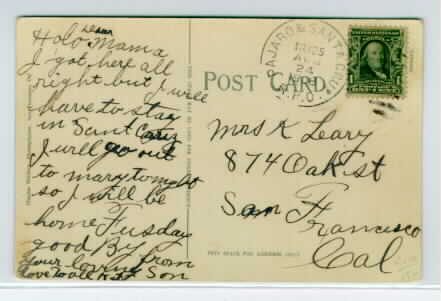 dear
Holo Mama
I got here all
right but I will
have to stay
in Saint Cruz
I will go out
to mary tonight
so I will be
home Tusday
good By from
your loving Son
love to all
POST CARD
PAJARO & SANTA CRUZ
AUG
24
R.P.O.
Mrs K Leary
874 Oak St
San Francisco
Cal
THIS SPACE FOR ADDRESS ONLY